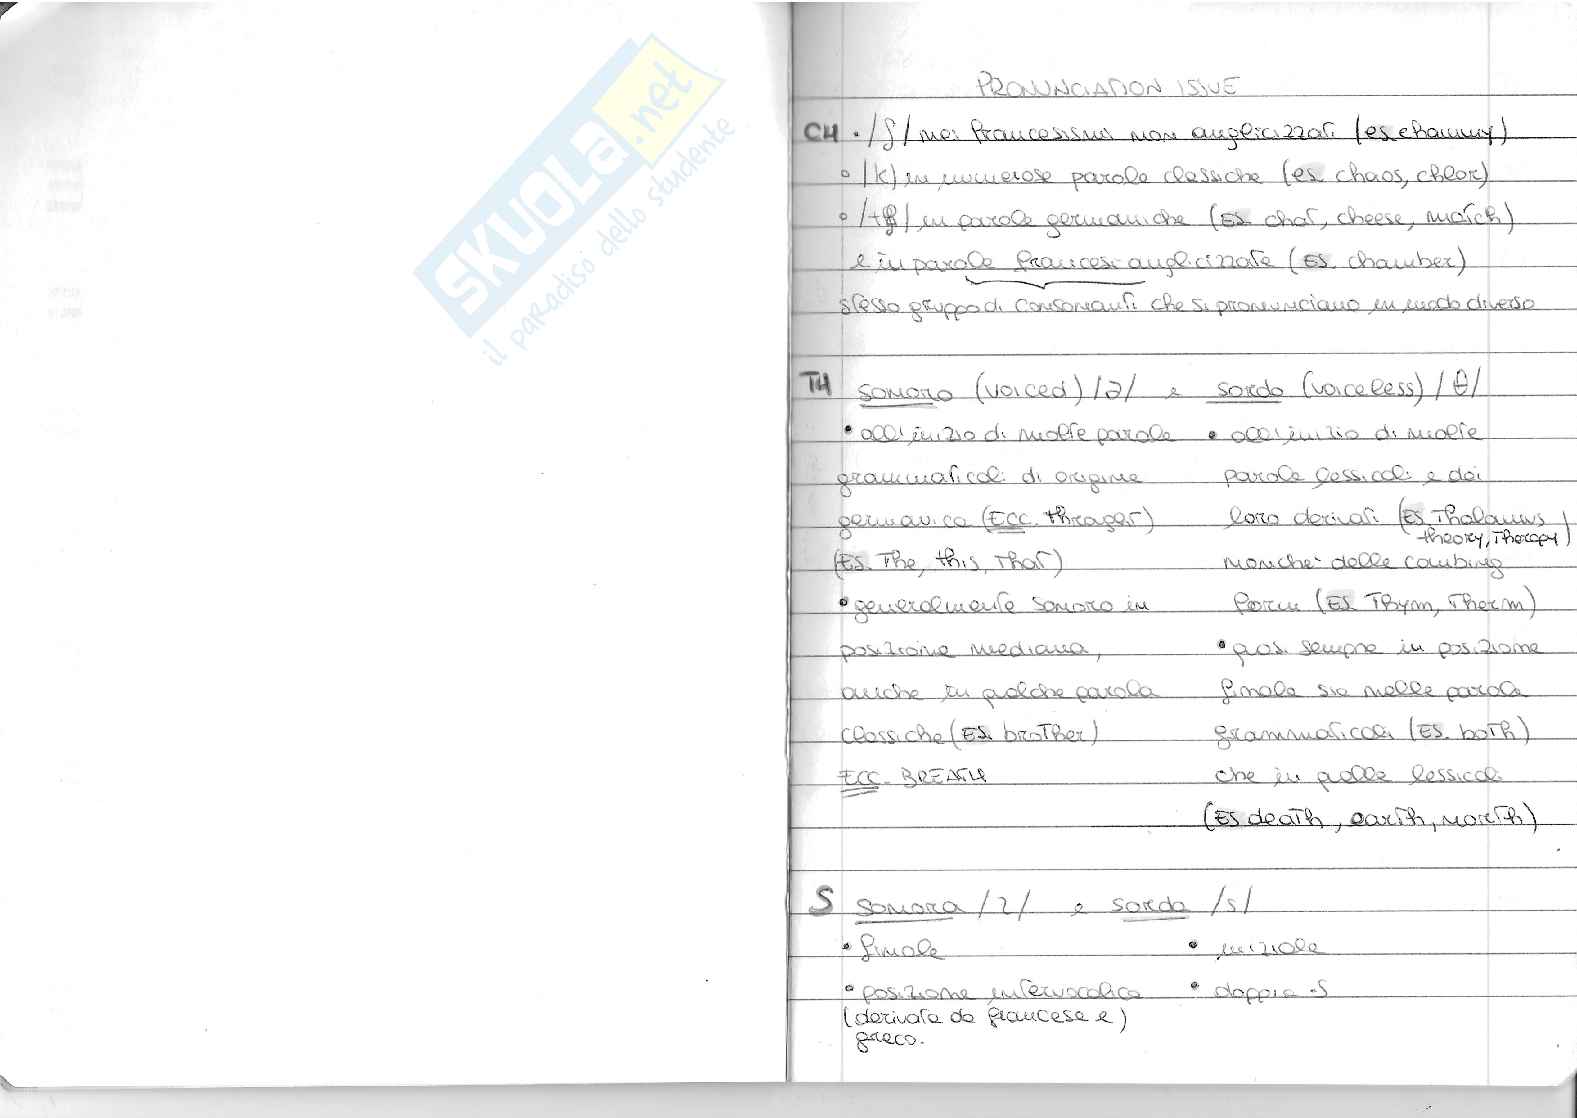 SKUOLA.net
il paradiso dello studente
PRONUNCIATION ISSUE
CH • /ʃ/ nei francesismi non anglicizzati (es chammy)
• /k/ in numerose parole classiche (es. chaos, chlor)
• /tʃ/ in parole germaniche (ES. chat, cheese, match)
e in parole francesi anglicizzate (ES. chamber)
stesso gruppo di consonanti che si pronunciano in modo diverso
TH sonoro (voiced) /ə/ e sordo (voiceless) /θ/
• all'inizio di molte parole
grammaticali di origine
germanica (ECC.
(ES. The, this, that)
• generalmente sonoro in
posizione mediana,
anche in qualche parola
classiche (ES. brother)
ECC. BREATH
• all'inizio di molte
parole lessicali e dei
loro derivati (ES. Thalamus
theory, Therapy)
nonché delle combing
form (ES Thym, Therm)
• quasi sempre in posizione
finale sia nelle parole
grammaticali (ES. both)
che in quelle lessicali
(ES death, earth, north)
S sonora /z/ e sorda /s/
• finale
• posizione intervocalica
(derivata da francese e)
greco.
• iniziale
• doppia -s